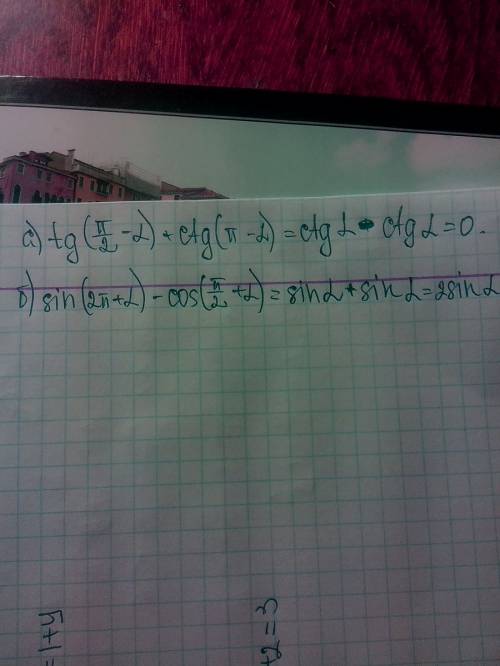 а) tg(π/2 - α) + ctg(π - α) = ctg α - ctg α = 0.
б) sin(2π + α) - cos(π/2 + α) = sin α + sin α = 2sin α
= 1 + y
+2 = 3